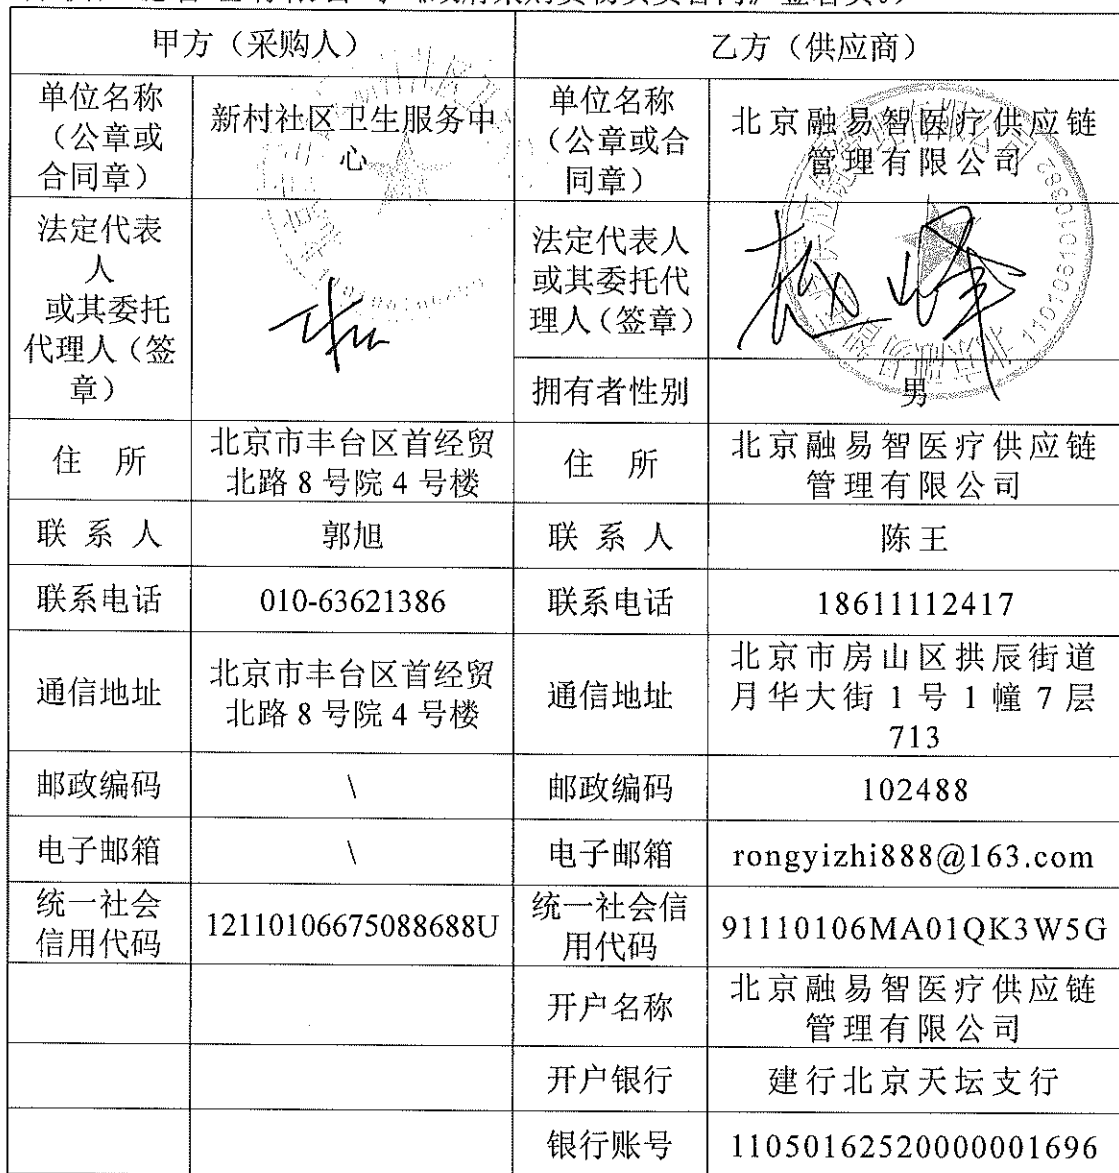 甲方（采购人）
乙方（供应商）
单位名称
（公章或
合同章）
新村社区卫生服务中
心
单位名称
（公章或合
同章）
北京融易智医疗供应链
管理有限公司
法定代表
人
或其委托
代理人（签
章）
法定代表人
或其委托代
理人（签章）
赵峰
拥有者性别
男
住 所
北京市丰台区首经贸
北路 8 号院 4 号楼
住 所
北京融易智医疗供应链
管理有限公司
联 系 人
郭旭
联 系 人
陈王
联系电话
010-63621386
联系电话
18611112417
通信地址
北京市丰台区首经贸
北路 8 号院 4 号楼
通信地址
北京市房山区拱辰街道
月华大街 1 号 1 幢 7 层
713
邮政编码
\
邮政编码
102488
电子邮箱
\
电子邮箱
rongyizhi888@163.com
统一社会
信用代码
12110106675088688U
统一社会信
用代码
91110106MA01QK3W5G
开户名称
北京融易智医疗供应链
管理有限公司
开户银行
建行北京天坛支行
银行账号
11050162520000001696